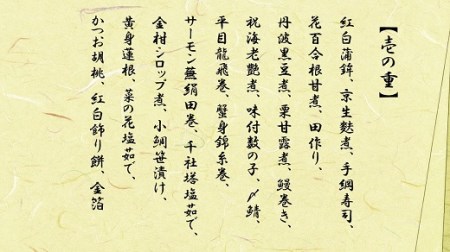 【壱の重】
紅白蒲鉾、京生麩煮、手綱寿司、
花百合根甘煮、田作り、
丹波黒豆煮、栗甘露煮、鰻巻き、
祝海老艶煮、味付数の子、〆鯖、
平目龍飛巻、蟹身錦糸巻、
サーモン蕪絹田巻、千社塔塩茹で、
金柑シロップ煮、小鯛笹漬け、
黄身蓮根、菜の花塩茹で、
かつお胡桃、紅白飾り餅、金箔